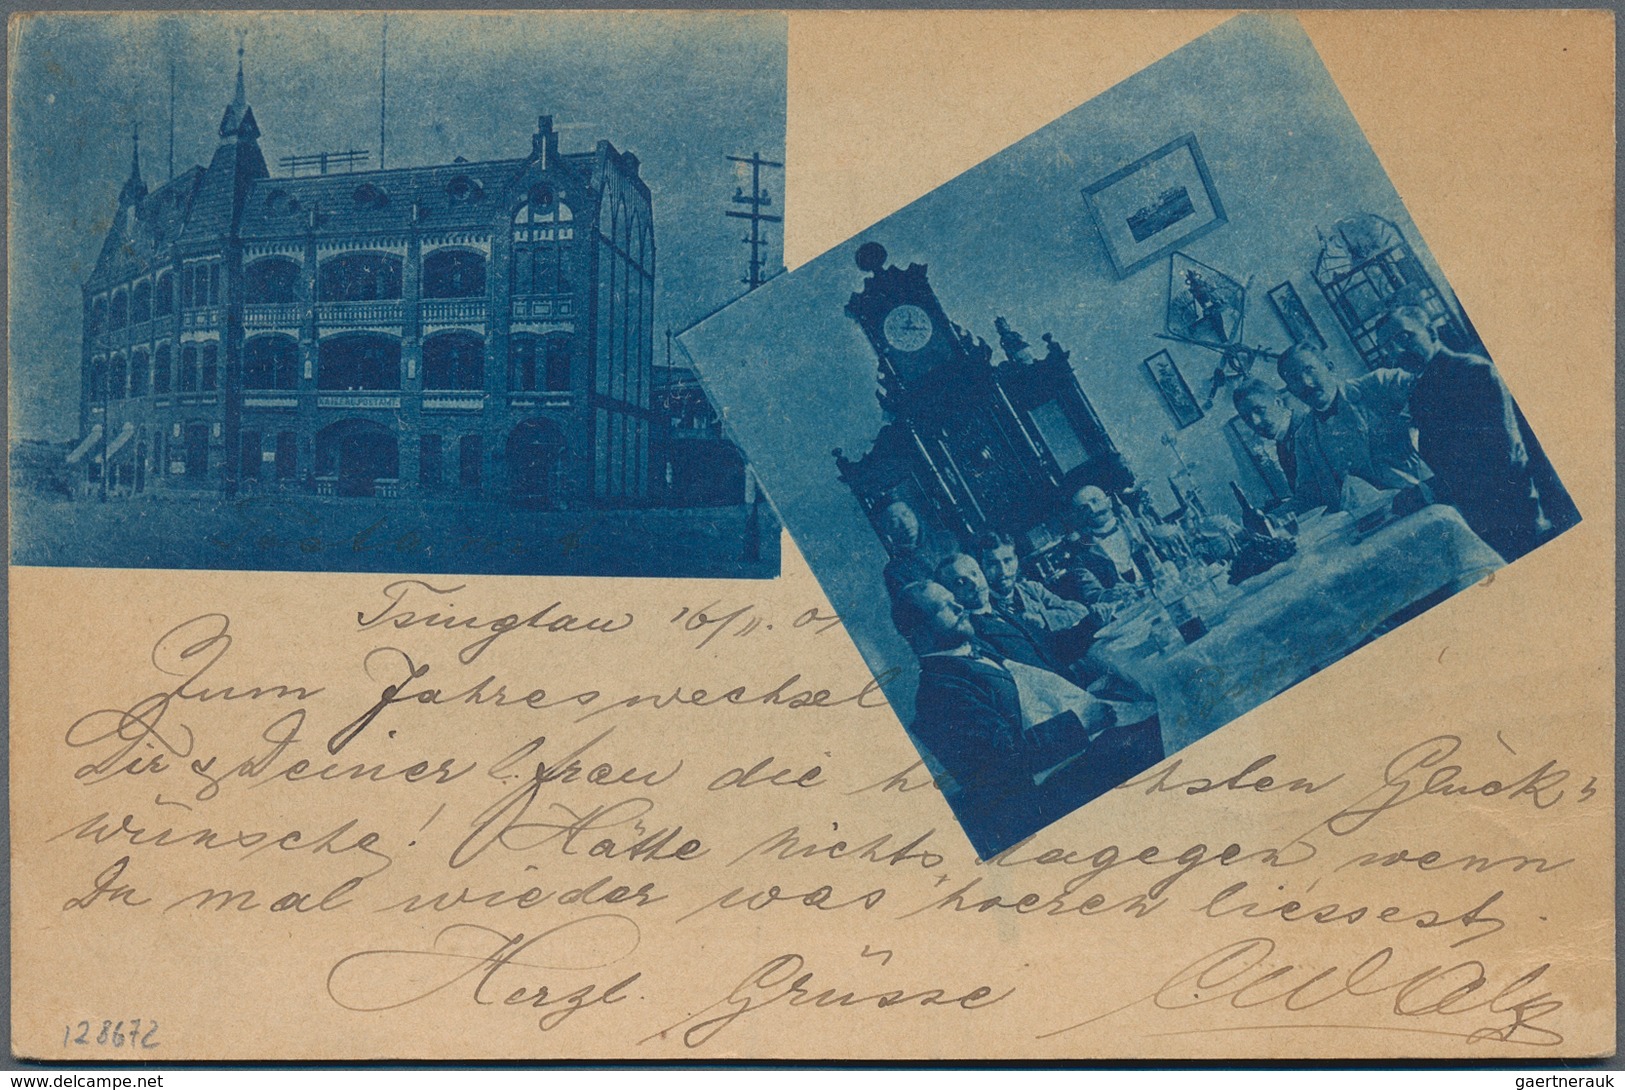 KAISERL. POSTAMT.
Tsingtau 16/11. 01
Zum Jahreswechsel
Dir & Deiner l. frau die herzlichsten Glück-
wünsche! Hätte nichts dagegen, wenn
Du mal wieder was hoeren liessest.
Herzl. Grüsse
128672
delcampe.net
gaertnerauk